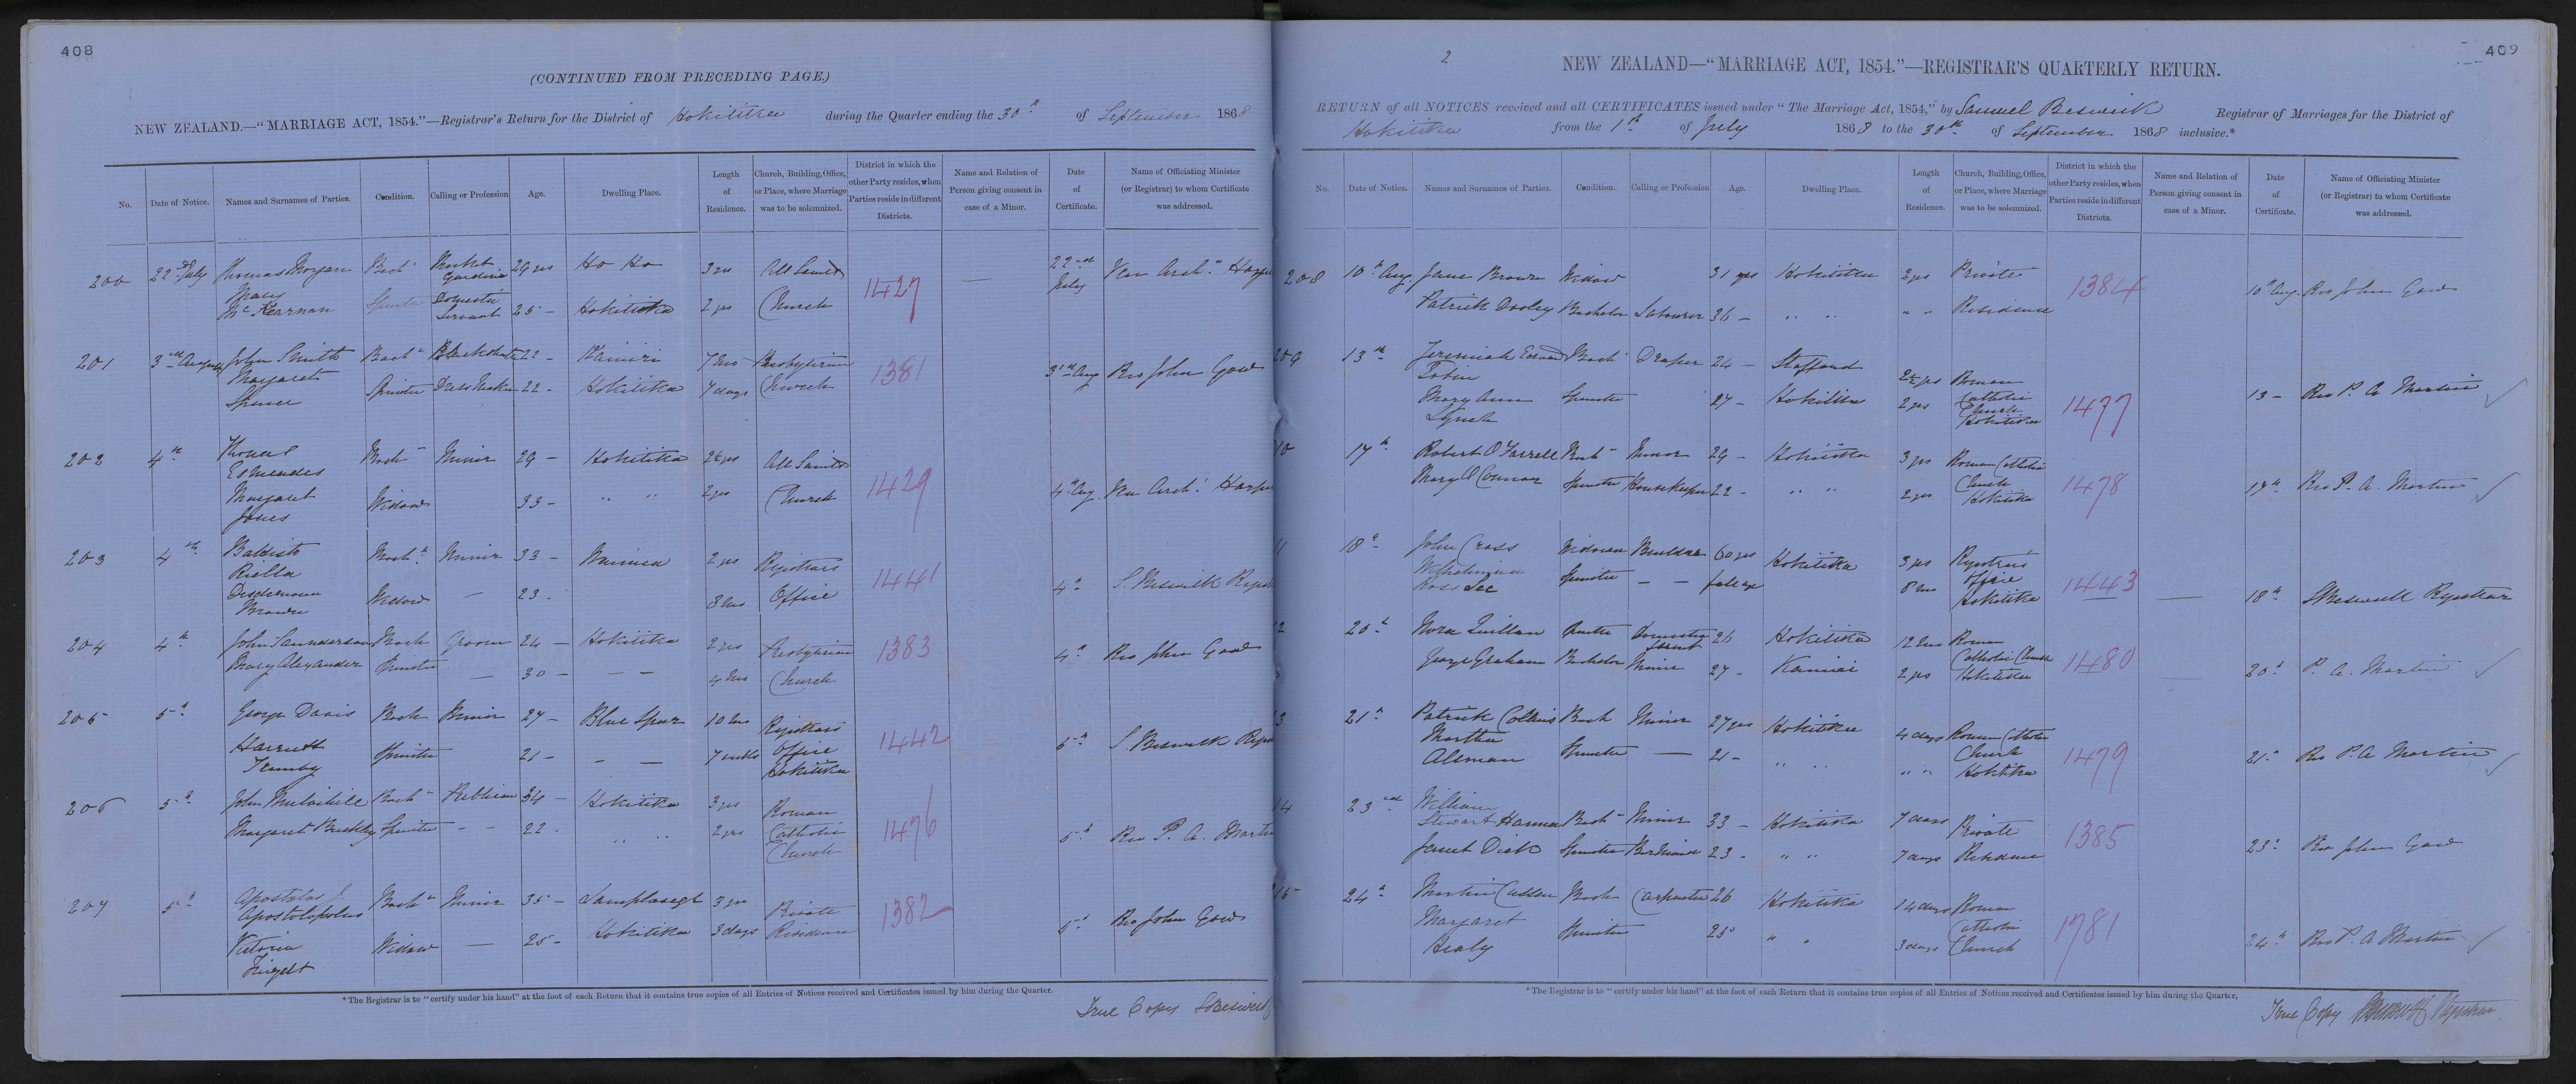 408
(CONTINUED FROM PRECEDING PAGE.)
NEW ZEALAND.—"MARRIAGE ACT, 1854."—Registrar's Return for the District of Hokitika during the Quarter ending the 30th of September 1868
No. Date of Notice. Names and Surnames of Parties. Condition. Calling or Profession Age. Dwelling Place. Length of Residence. Church, Building, Office, or Place, where Marriage was to be solemnized. District in which the other Party resides, when Parties reside in different Districts. Name and Relation of Person giving consent in case of a Minor. Date of Certificate. Name of Officiating Minister (or Registrar) to whom Certificate was addressed.
200 22nd July Thomas Morgan Bachr Market Gardiner 29 yrs Ho Ho 3 yrs All Saints 1427 — 22nd July Ven Archn Harper
Mary McKearnan Spinster Domestic Servant 25 — Hokitika 2 yrs Church
201 3rd August John Smith Bachr 22 — Kaniri 7 mos Presbyterian 1381 3rd Aug Rev John Gow
Margaret Spence Spinster Dress Maker 22 — Hokitika 7 days Church
202 4th Esmeades Bach Miner 29 — Hokitika 2½ yrs All Saints 1429 4th Aug Ven Archn Harper
Margaret Jones Widow 33 — " " 2 yrs Church
203 4th Batista Riella Bachr Miner 33 — Waimea 2 yrs Registrars 1441 4th S. Beswick
Brown Widow — 23 - 8 mos Office
204 4th John Saunderson Bach Groom 24 — Hokitika 2 yrs Presbyterian 1383 4th Rev John Gow
Mary Alexander Spinster — 30 — — — 4 mos Church
205 5th George Davis Bach Miner 27 — Blue Spur 10 mos Registrars 1442 5th S. Beswick
Harriett Spinster 21 — — — 7 weeks Office Hokitika
206 5th John Mulvihill Bachr Publican 34 — Hokitika 3 yrs Roman 1476 5th Rev P. A. Martin
Margaret Buckley Spinster — — 22 - " " 2 yrs Catholic Church
207 5th Apostolos J. Apostolopolus Bachr Miner 35 — 3 yrs Private 1382 5th Rev John Gow
Victoria Widow — 25 - Hokitika 3 days Residence
*The Registrar is to "certify under his hand" at the foot of each Return that it contains true copies of all Entries of Notices received and Certificates issued by him during the Quarter.
True Copy SBeswick
409
2
NEW ZEALAND—"MARRIAGE ACT, 1854."—REGISTRAR'S QUARTERLY RETURN.
RETURN of all NOTICES received and all CERTIFICATES issued under "The Marriage Act, 1854," by Samuel Beswick Registrar of Marriages for the District of
Hokitika from the 1st of July 1868 to the 30th of September 1868 inclusive.*
No. Date of Notice. Names and Surnames of Parties. Condition. Calling or Profession Age. Dwelling Place. Length of Residence. Church, Building, Office, or Place, where Marriage was to be solemnized. District in which the other Party resides, when Parties reside in different Districts. Name and Relation of Person giving consent in case of a Minor. Date of Certificate. Name of Officiating Minister (or Registrar) to whom Certificate was addressed.
208 10th Aug. Jane Brown Widow 31 yrs Hokitika 2 yrs Private 1384 10th Aug. Rev John Gow
Patrick Dooley Bachelor Labourer 36 — " " " " Residence
209 13th Jeremiah Edward Tobin Bachr Draper 24 — Stafford 2½ yrs Roman 1477 13 — Rev P. A. Martin
Mary Ann Lynch Spinster 27 — Hokitika 2 yrs Catholic Church Hokitika
10 17th Robert O'Farrell Bach Miner 29 — Hokitika 3 yrs Roman Catholic 1478 17th Rev P. A. Martin
Mary O'Connor Spinster Housekeeper 22 - " " 2 yrs Church Hokitika
11 18th John Cross Widower 60 yrs Hokitika 3 yrs Registrars 1443 — 18th SBeswick Registrar
Wilhelmina Spinster — — full age 8 mos Office Hokitika
12 20th Nora Quillan Spinster Domestic Servt 26 Hokitika 12 mos Roman 1480 — 20th P. A. Martin
George Graham Bachelor Miner 27 - Kaniri 2 yrs Catholic Church Hokitika
13 21st Patrick Collins Bach Miner 27 yrs Hokitika 4 days Roman Catholic 1479 21st Rev P. A. Martin
Martha Altman Spinster — 21 - " " " " Church Hokitika
14 23rd William Stewart Hanna Bachr Miner 33 — Hokitika 7 days Private 1385 23rd Rev John Gow
Janet Dick Spinster Barmaid 23 - " " 7 days Residence
15 24th Martin Cullen Bach Carpenter 26 Hokitika 14 days Roman 1781 24th Rev P. A. Martin
Margaret Healy Spinster 25 " " 3 days Catholic Church
*The Registrar is to "certify under his hand" at the foot of each Return that it contains true copies of all Entries of Notices received and Certificates issued by him during the Quarter,
True Copy SBeswick Registrar